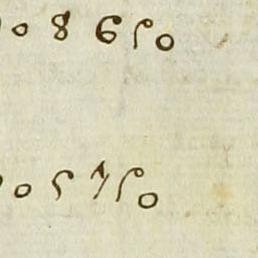 0 8 6 5 0
0 5 7 5 0